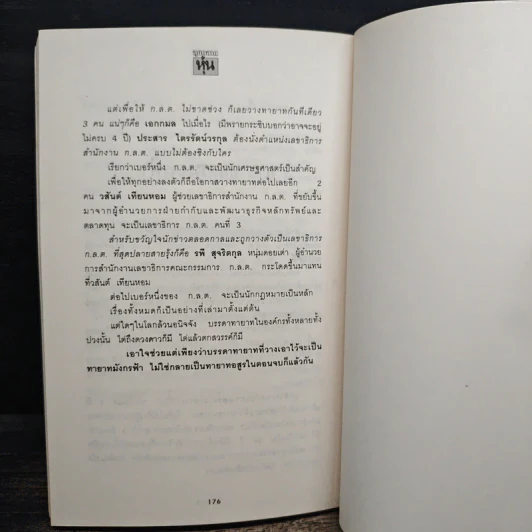 หุ้น
แต่เพื่อให้ ก.ล.ต. ไม่ขาดช่วง ก็เลยวางทายาทกันทีเดียว
3 คน แน่ๆก็คือ เอกกมล ไปเมื่อไร (มีพรายกระซิบบอกว่าอาจจะอยู่
ไม่ครบ 4 ปี) ประสาร ไตรรัตน์วรกุล ต้องนั่งตำแหน่งเลขาธิการ
สำนักงาน ก.ล.ต. แบบไม่ต้องชิงกับใคร
เรียกว่าเบอร์หนึ่ง ก.ล.ต. จะเป็นนักเศรษฐศาสตร์เป็นสำคัญ
เพื่อให้ทุกอย่างลงตัวก็ถือโอกาสวางทายาทต่อไปเลยอีก 2
คน วสันต์ เทียนหอม ผู้ช่วยเลขาธิการสำนักงาน ก.ล.ต. ที่ขยับขึ้น
มาจากผู้อำนวยการฝ่ายกำกับและพัฒนาธุรกิจหลักทรัพย์และ
ตลาดทุน จะเป็นเลขาธิการ ก.ล.ต. คนที่ 3
สำหรับขวัญใจนักข่าวตลอดกาลและถูกวางตัวเป็นเลขาธิการ
ก.ล.ต. ที่สุดปลายสายรุ้งก็คือ รพี สุจริตกุล หนุ่มดอยเต่า ผู้อำนวย
การสำนักงานเลขาธิการคณะกรรมการ ก.ล.ต. กระโดดขึ้นมาแทน
ที่วสันต์ เทียนหอม
ต่อไปเบอร์หนึ่งของ ก.ล.ต. จะเป็นนักกฎหมายเป็นหลัก
เรื่องทั้งหมดก็เป็นอย่างที่เล่ามาตั้งแต่ต้น
แต่ใดๆในโลกล้วนอนิจจัง บรรดาทายาทในองค์กรทั้งหลายทั้ง
ปวงนั้น ไต่ถึงดวงดาวก็มี ไต่แล้วตกสวรรค์ก็มี
เอาใจช่วยแต่เพียงว่าบรรดาทายาทที่วางเอาไว้จะเป็น
ทายาทมังกรฟ้า ไม่ใช่กลายเป็นทายาทอสูรในตอนจบก็แล้วกัน
176